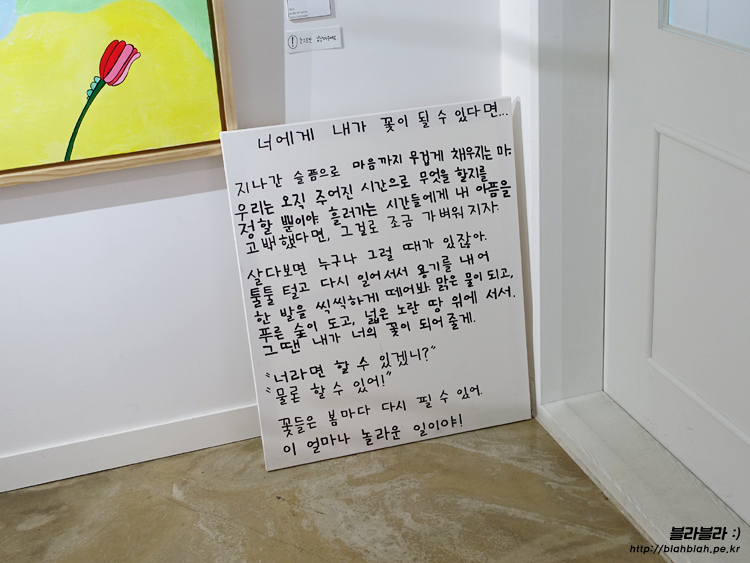 너에게 내가 꽃이 될 수 있다면...
지나간 슬픔으로 마음까지 무겁게 채우지는 마.
우리는 오직 주어진 시간으로 무엇을 할지를
정할 뿐이야 흘러가는 시간들에게 내 아픔을
고백했다면, 그걸로 조금 가벼워지자.
살다보면 누구나 그럴 때가 있잖아.
툴툴 털고 다시 일어서서 용기를 내어
한 발을 씩씩하게 떼어봐. 맑은 물이 되고,
푸른 숲이 되고, 넓은 노란 땅 위에 서서.
그땐 내가 너의 꽃이 되어 줄게.
"너라면 할 수 있겠니?"
"물론 할 수 있어!"
꽃들은 봄마다 다시 필 수 있어.
이 얼마나 놀라운 일이야!
블라블라 :)
http://blahblah.pe.kr